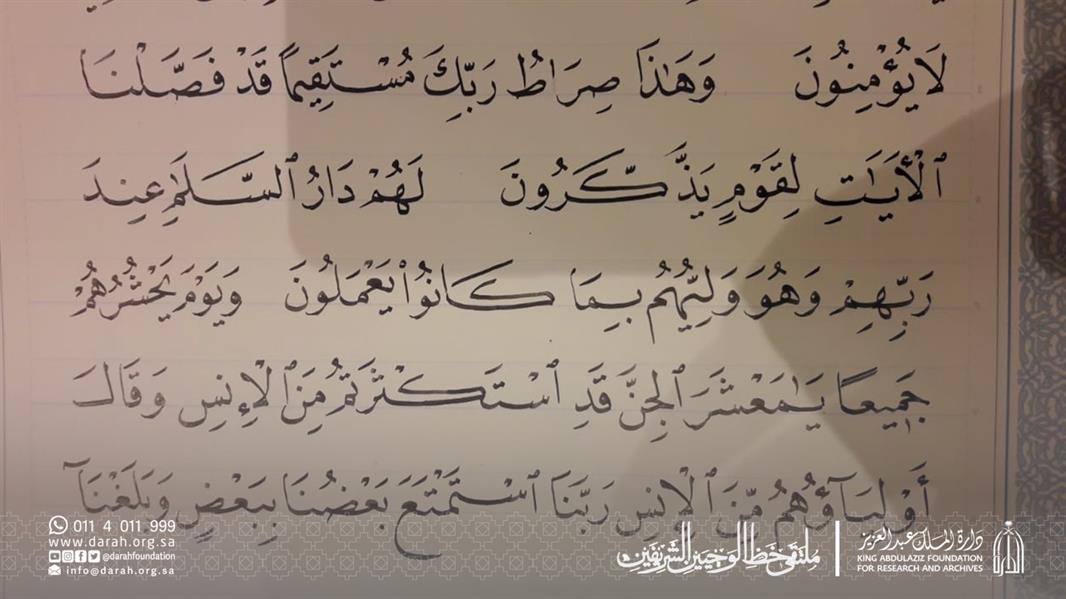 لَا يُؤْمِنُونَ وَهَٰذَا صِرَاطُ رَبِّكَ مُسْتَقِيمًا قَدْ فَصَّلْنَا
ٱلْأَيَٰتِ لِقَوْمٍ يَذَّكَّرُونَ لَهُمْ دَارُ ٱلسَّلَٰمِ عِندَ
رَبِّهِمْ وَهُوَ وَلِيُّهُم بِمَا كَانُوا۟ يَعْمَلُونَ وَيَوْمَ يَحْشُرُهُمْ
جَمِيعًا يَٰمَعْشَرَ ٱلْجِنِّ قَدِ ٱسْتَكْثَرْتُم مِّنَ ٱلْإِنسِ وَقَالَ
أَوْلِيَآؤُهُم مِّنَ ٱلْإِنسِ رَبَّنَا ٱسْتَمْتَعَ بَعْضُنَا بِبَعْضٍ وَبَلَغْنَآ
011 4 011 999
www.darah.org.sa
@darahfoundation
info@darah.org.sa
ملتقى خط الوحيين الشريفين
دارة الملك عبدالعزيز
KING ABDULAZIZ FOUNDATION
FOR RESEARCH AND ARCHIVES